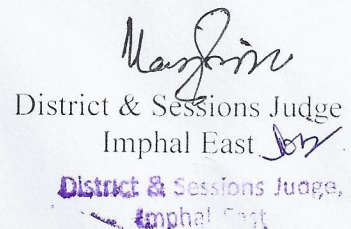 District & Sessions Judge
Imphal East
District & Sessions Juage,
Imphal East